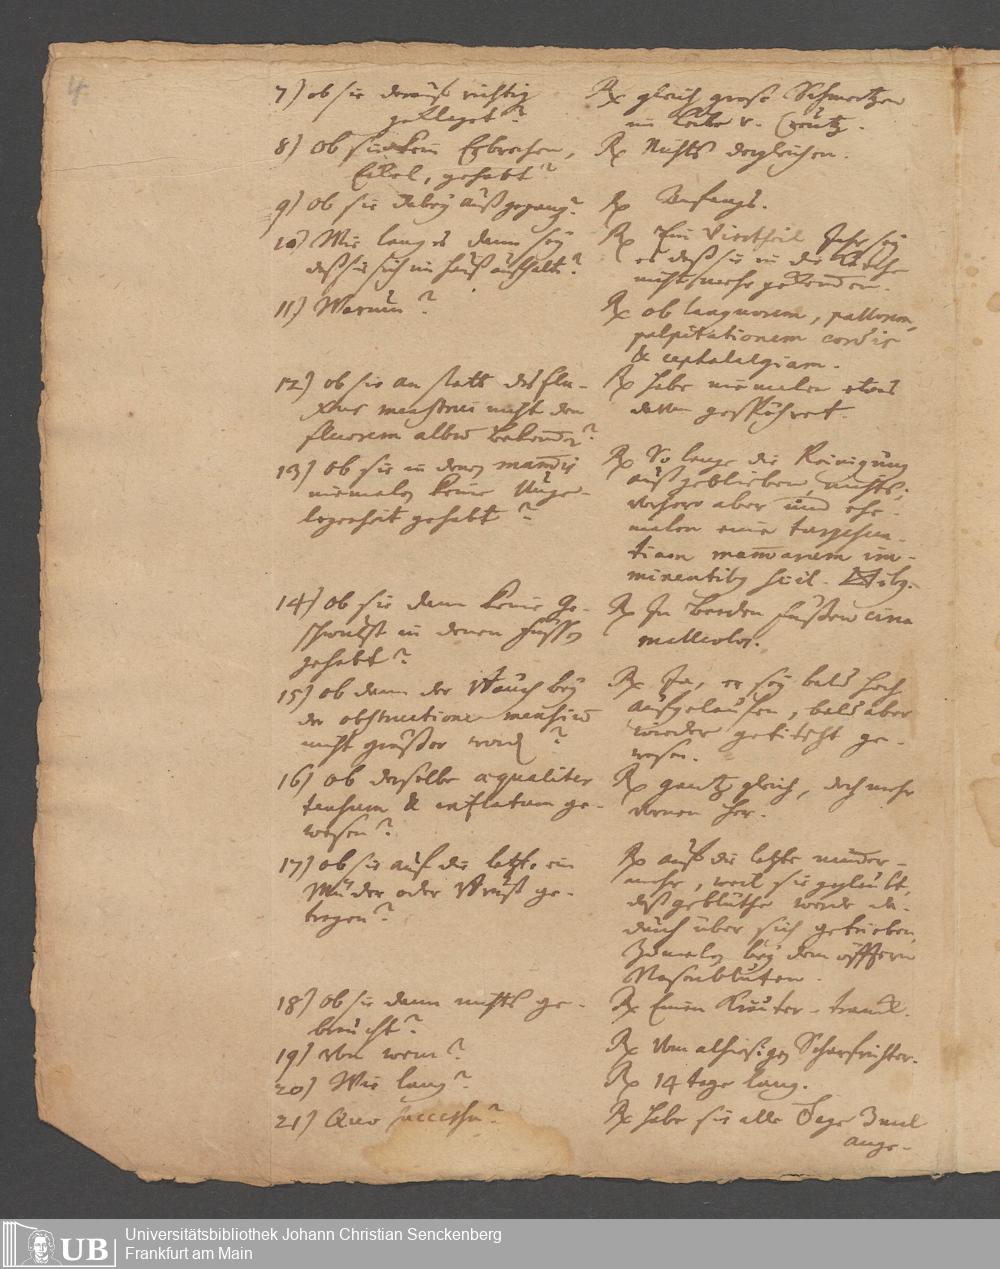 4.
7) ob sie darauf richtig
geklagt?
Rx gleich große Schmertzen
im Leibe v. Creutz.
8) Ob sie kein Erbrechen,
Eckel, gehabt?
Rx Nichts dergleichen.
9) Ob sie dabey außgegang?
Rx Anfangs.
10) Wie lang es dann sey
daß sie sich im Hauß aufhalte?
Rx Ein Viertheil Jahr sey
es daß sie in die Kirche
nicht mehr
11) Warum?
Rx ob languorem, pallorem,
palpitationem cordis
& cephalalgiam.
12) ob sie an statt des flu-
xus menstrui nicht den
fluorem albu bekomen?
Rx habe niemalen etwas
davon gespühret.
13) Ob sie in denen mamis
niemalen keine Unge-
legenheit gehabt?
Rx So lange die Reinigung
außgeblieben nichts,
vorhero aber und ehe-
malen eine turgescen-
tiam mamarum im-
minentibus scil.
14) Ob sie dann keine Ge-
schwulst in denen Füssen
gehabt?
Rx In beeden Füßen circa
malleolos.
15) ob dann der Bauch bey
der obstructione mensium
nicht größer word?
Rx Ja, er sey bald hoch
aufgelaufen, bald aber
wieder ge-
wesen.
16) Ob derselbe æqualiter
tensum & inflatum ge-
wesen?
Rx gantz gleich, doch mehr
vornen her.
17) ob sie auf die letzte ein
Mieder oder Brust ge-
tragen?
Rx auf die letzte nimmer-
mehr, weil sie geglaubt,
daß geblüthe werde da-
durch über sich getrieben,
Zumalen bey dem öfftern
Nasenbluten.
18) Ob sie dann nichts ge-
braucht?
Rx Einen Kräuter-tranck.
19) Von wem?
Rx Vom alhiesigen Scharfrichter.
20) Wie lang?
Rx 14 tage lang.
21) Quo successu?
Rx habe sie alle Tage 3 mal
ange-
UB
Universitätsbibliothek Johann Christian Senckenberg
Frankfurt am Main